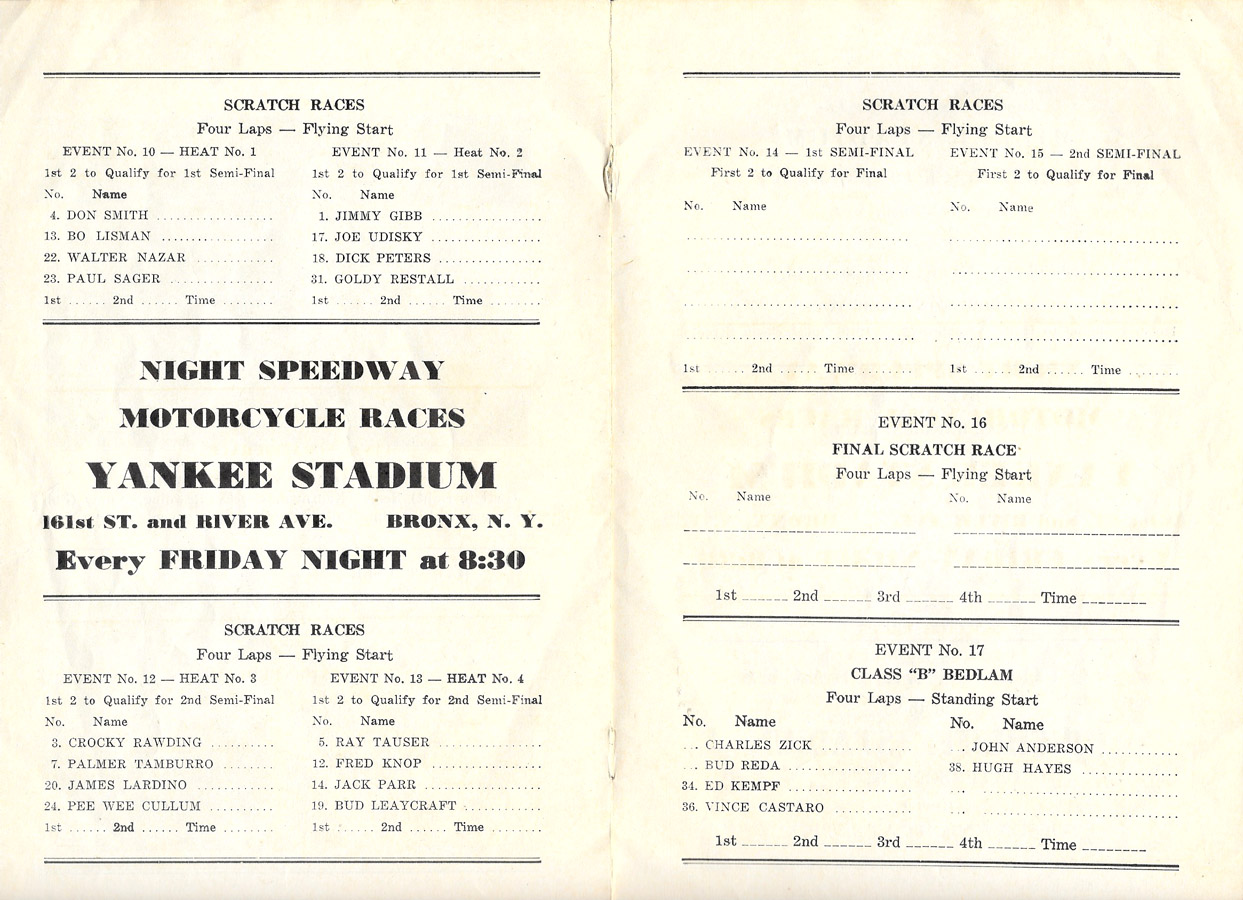 SCRATCH RACES
Four Laps — Flying Start
EVENT No. 10 — HEAT No. 1
1st 2 to Qualify for 1st Semi-Final
No. Name
4. DON SMITH ..................
13. BO LISMAN .................
22. WALTER NAZAR ............
23. PAUL SAGER ................
1st ...... 2nd ...... Time ........
EVENT No. 11 — Heat No. 2
1st 2 to Qualify for 1st Semi-Final
No. Name
1. JIMMY GIBB .................
17. JOE UDISKY .................
18. DICK PETERS .................
31. GOLDY RESTALL ............
1st ...... 2nd ...... Time .........
NIGHT SPEEDWAY
MOTORCYCLE RACES
YANKEE STADIUM
161st ST. and RIVER AVE. BRONX, N. Y.
Every FRIDAY NIGHT at 8:30
SCRATCH RACES
Four Laps — Flying Start
EVENT No. 12 — HEAT No. 3
1st 2 to Qualify for 2nd Semi-Final
No. Name
3. CROCKY RAWDING ..........
7. PALMER TAMBURRO ........
20. JAMES LARDINO .............
24. PEE WEE CULLUM ..........
1st ...... 2nd ...... Time ........
EVENT No. 13 — HEAT No. 4
1st 2 to Qualify for 2nd Semi-Final
No. Name
5. RAY TAUSER .................
12. FRED KNOP ..................
14. JACK PARR ...................
19. BUD LEAYCRAFT ............
1st ...... 2nd ...... Time .........
SCRATCH RACES
Four Laps — Flying Start
EVENT No. 14 — 1st SEMI-FINAL
First 2 to Qualify for Final
No. Name
1st ...... 2nd ...... Time .........
EVENT No. 15 — 2nd SEMI-FINAL
First 2 to Qualify for Final
No. Name
1st ...... 2nd ...... Time ........
EVENT No. 16
FINAL SCRATCH RACE
Four Laps — Flying Start
No. Name No. Name
1st ______ 2nd ______ 3rd ______ 4th ______ Time ________
EVENT No. 17
CLASS “B” BEDLAM
Four Laps — Standing Start
No. Name
... CHARLES ZICK ..............
... BUD REDA ...................
34. ED KEMPF ...................
36. VINCE CASTARO ............
No. Name
... JOHN ANDERSON ............
38. HUGH HAYES ...............
...
...
1st ______ 2nd ______ 3rd ______ 4th ______ Time ________